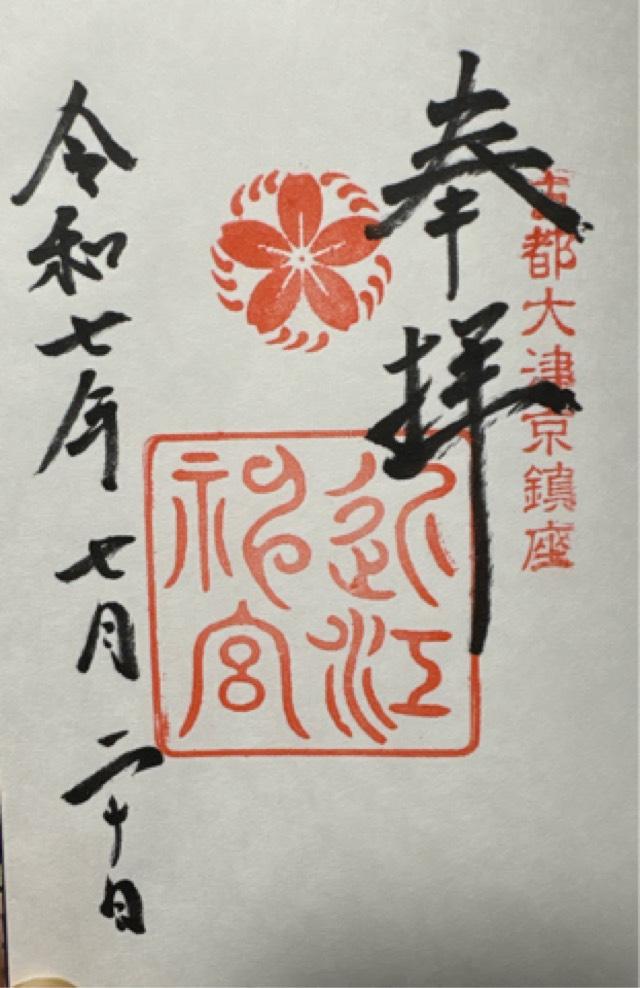 奉拝
古都大津京鎮座
近江
神宮
令和七年七月二十日